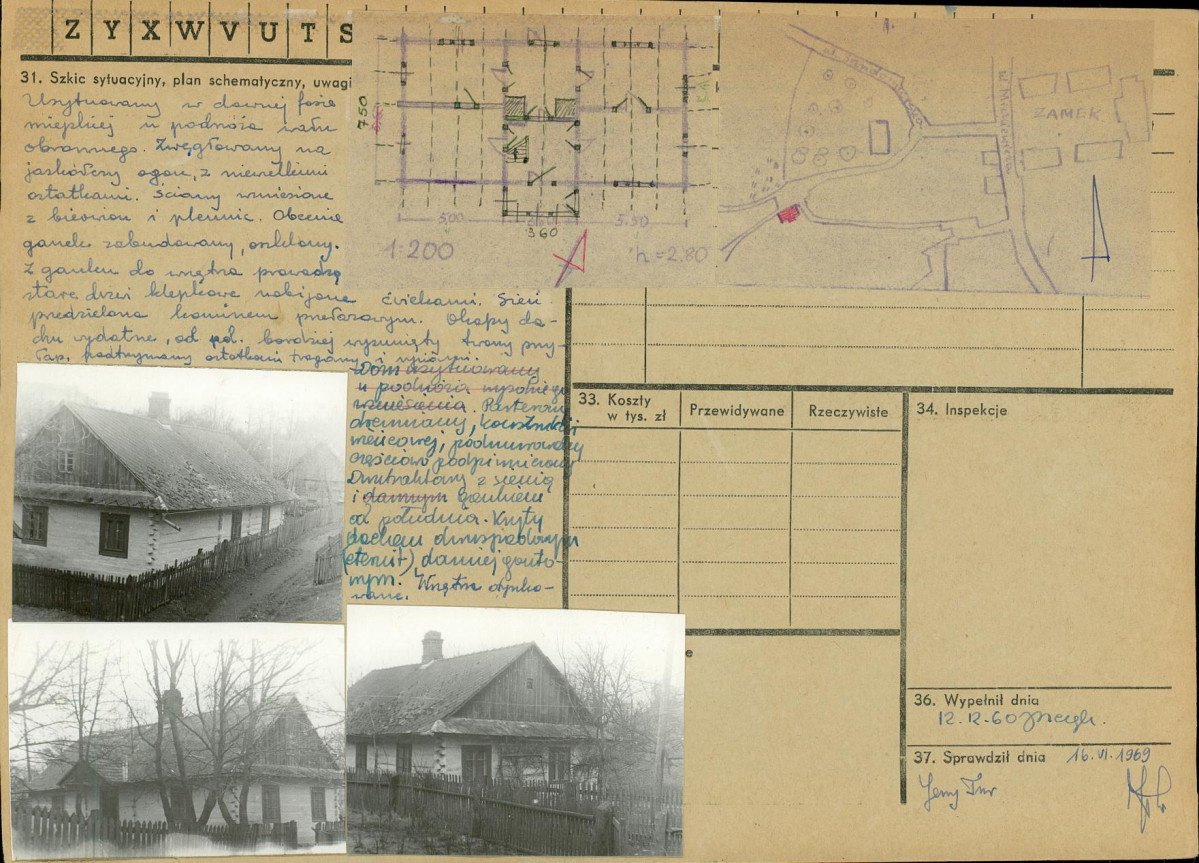 Z Y X W V U T S
31. Szkic sytuacyjny, plan schematyczny, uwagi
Usytuowany w dawnej fosie
miejskiej u podnóża wału
obronnego. Zwęgłowany na
jaskółczy ogon, z niewielkimi
ostatkami. Ściany wzniesione
z bierwion i płennic. Obecnie
ganek zabudowany, oszklony.
Z ganku do wnętrza prowadzą
stare drzwi klepkowe nabijane ćwiekami. Sień
przedzielona kominem przełazowym. Okapy da-
chu wydatne, od płd. bardziej wysunięty trony przy-
łap, podtrzymany ostatkami tragarzy i
Dom usytuowany
u podnóża wysokiego
wzniesienia. Parterowy
drewniany, konstrukcji
wieńcowej, podmurowany
częściowo podpiwniczony
Dwutraktowy z sienią
i dawnym Gankiem
od południa. Kryty
dachem dwuspadowym
(eternit), dawniej gonto-
wym. Wnętrza otynko-
wane.
750
500
360
550
360
1:200
h = 2.80
ul. Sandomierska
ZAMEK
33. Koszty
w tys. zł
Przewidywane
Rzeczywiste
34. Inspekcje
e
36. Wypełnił dnia
12.12.60
37. Sprawdził dnia 16.VI.1969